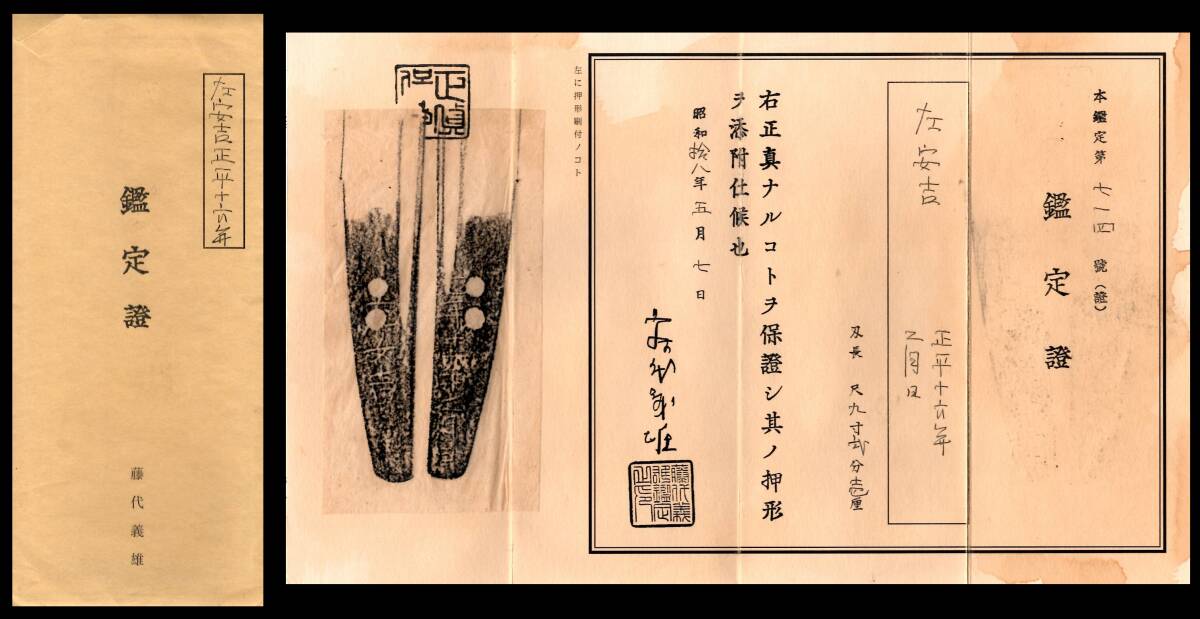 左安吉正平十六年
鑑定證
藤代義雄
本鑑定第七一四號(證)
鑑定證
左安吉
正平十六年
二月日
刄長 尺九寸弐分壱厘
右正真ナルコトヲ保證シ其ノ押形
ヲ添附仕候也
昭和拾八年五月七日
藤代義雄
左に押形刷付ノコト